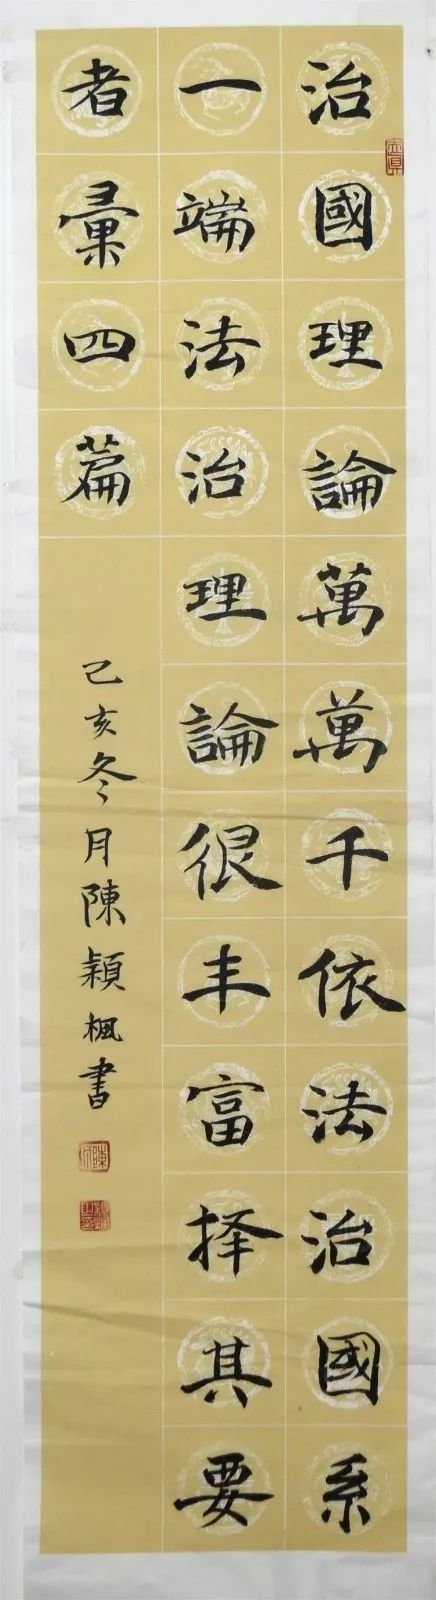 治國理論萬萬千依法治國系
一端法治理論很丰富择其要
者彙四篇
己亥冬月陳穎楓書